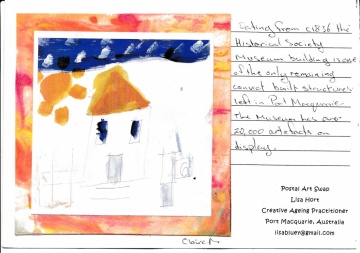 Dating from c1836 the
Historical Society
Museum building is one
of the only remaining
convict built structures
left in Port Macquarie.
The Museum has over
20,000 artefacts on
display.
Postal Art Swap
Lisa Hort
Creative Ageing Practitioner
Port Macquarie, Australia
lisabluer@gmail.com